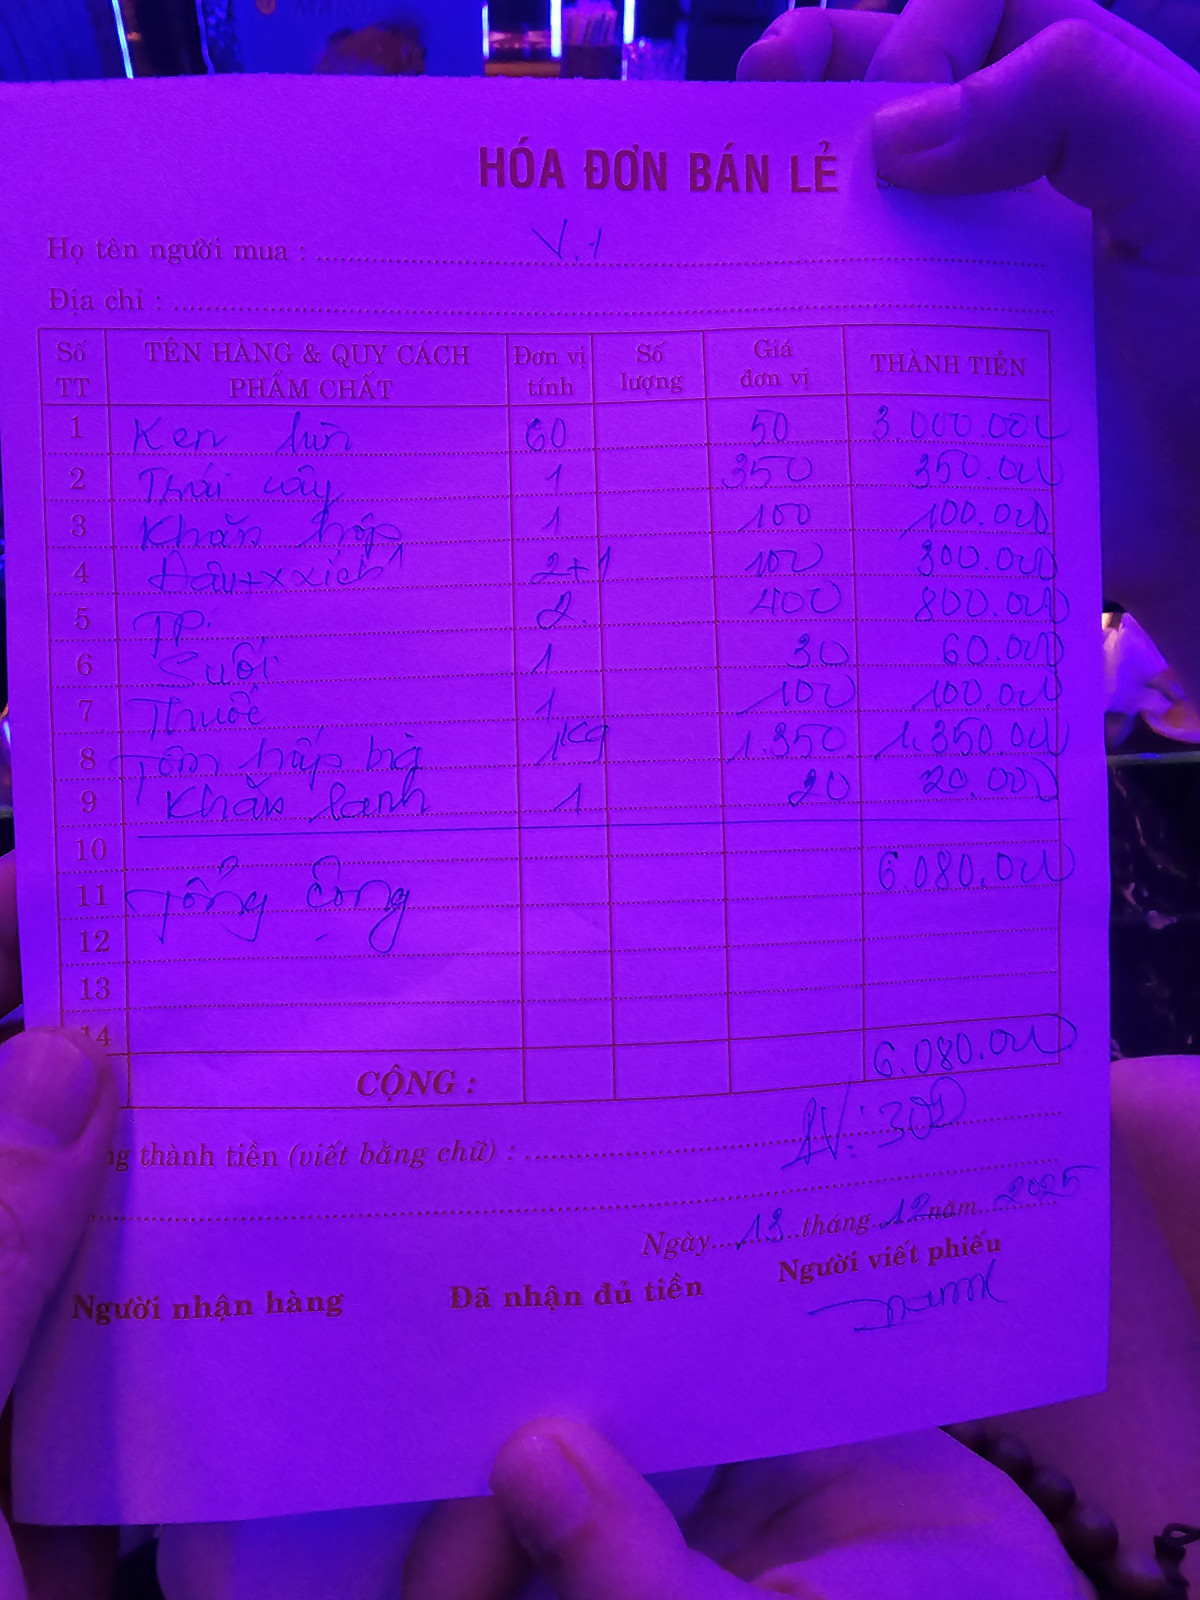 HÓA ĐƠN BÁN LẺ
Họ tên người mua : V.1
Địa chỉ :
Số TT TÊN HÀNG & QUY CÁCH PHẨM CHẤT Đơn vị tính Số lượng Giá đơn vị THÀNH TIỀN
1 Ken lùn 60 50 3.000.000
2 Trái cây 1 350 350.000
3 Khăn hộp 1 100 100.000
4 2+1 100 300.000
5 TP. 2 400 800.000
6 Suối 1 30 60.000
7 Thuốc 1 100 100.000
8 Tôm hấp bia 1kg 1.350 1.350.000
9 Khăn lạnh 1 20 20.000
10
11 Tổng Cộng 6.080.000
12
13
14
CỘNG : 6.080.000
thành tiền (viết bằng chữ) : NV: 300
Ngày 13 tháng 12 năm 2025
Người nhận hàng Đã nhận đủ tiền Người viết phiếu